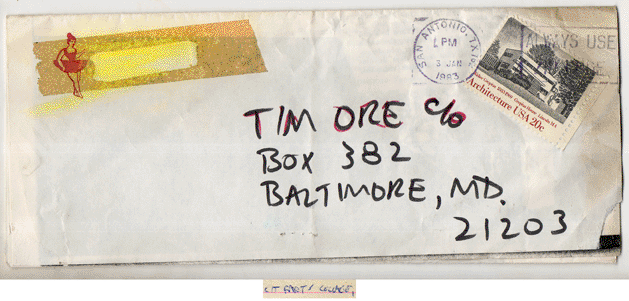 SAN ANTONIO, TX
PM
3 JAN
1983
ALWAYS USE
Architecture USA 20c
TIM ORE c/o
BOX 382
BALTIMORE, MD.
21203